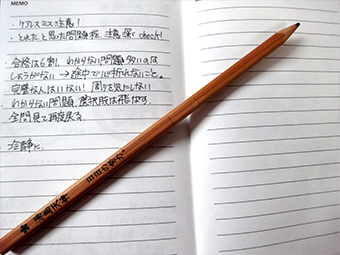 MEMO
・ケアレスミス注意!
・とれたと思った問題程、注意深くcheck!
・合格は6割、わからない問題多いのは
しょうがない→途中で心折れないこと。
完璧な人はいない!周りを気にしない
わからない問題、選択肢は飛ばす。
全問見て再度戻る
・冷静に。